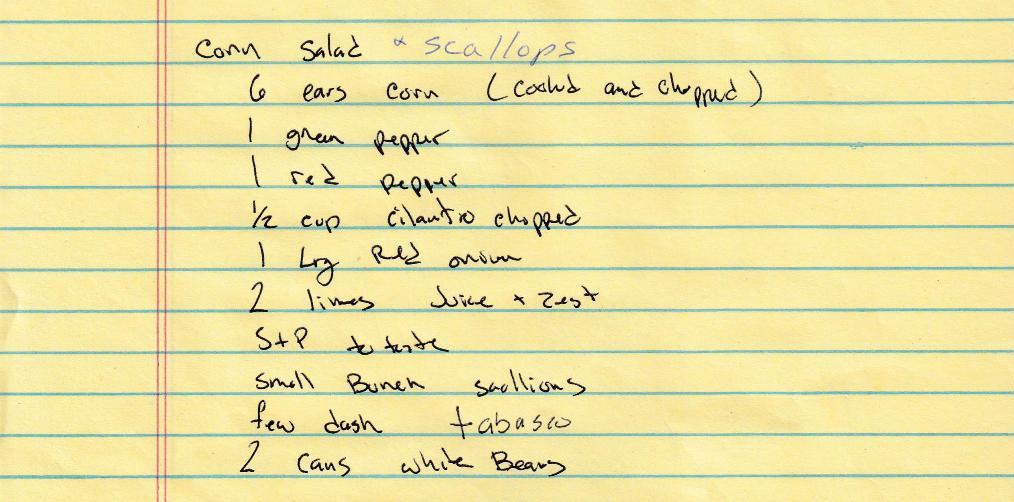 Corn Salad & scallops
6 ears corn (cooked and chopped)
1 green pepper
1 red pepper
1/2 cup cilantro chopped
1 Lrg Red onion
2 limes Juice + Zest
S+P to taste
small Bunch scallions
few dash tabasco
2 cans white Beans